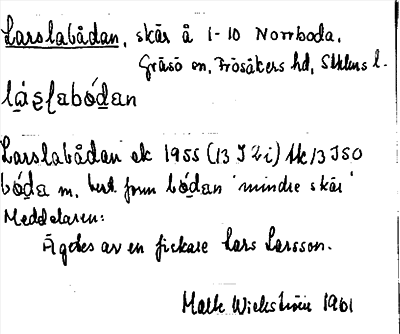 Larslabådan, skär å 1-10 Norrboda,
Gräsö sn, Frösåkers hd, Sthlms l.
Larslabådan ek 1955 (13 I 2 i)
båda m, best form bådan "mindre skär"
Meddelaren:
Ägdes av en fiskare Lars Larsson.
Wickström 1961